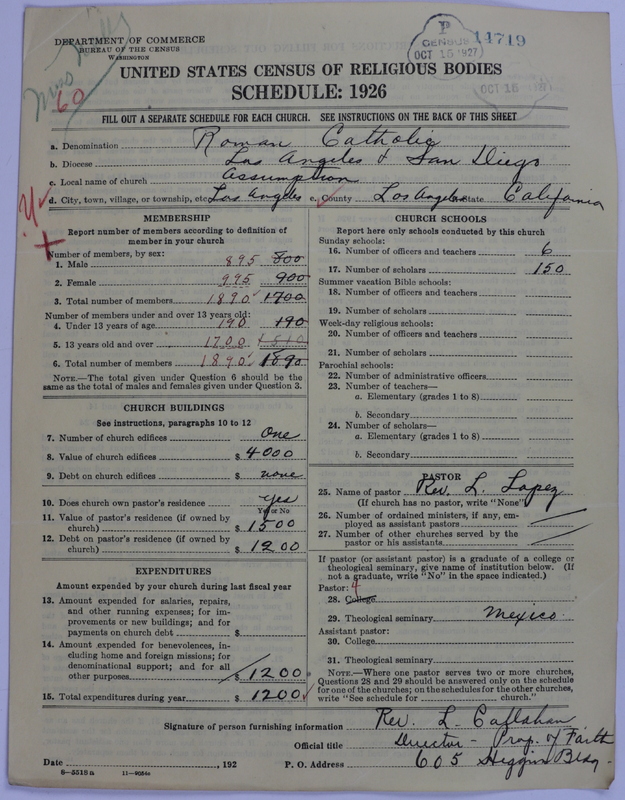 DEPARTMENT OF COMMERCE
BUREAU OF THE CENSUS
WASHINGTON
60
P
CENSUS
OCT 15 1927
14719
OCT 15
UNITED STATES CENSUS OF RELIGIOUS BODIES
SCHEDULE: 1926
FILL OUT A SEPARATE SCHEDULE FOR EACH CHURCH. SEE INSTRUCTIONS ON THE BACK OF THIS SHEET
a. Denomination Roman Catholic
b. Diocese Los Angeles & San Diego
c. Local name of church Assumption
d. City, town, village, or township, etc. Los Angeles e. County Los Angeles State California
MEMBERSHIP
Report number of members according to definition of
member in your church
Number of members, by sex:
1. Male 895 800
2. Female 995 900
3. Total number of members 1890 1700
Number of members under and over 13 years old:
4. Under 13 years of age 190 190
5. 13 years old and over 1700 1510
6. Total number of members 1890 1890
NOTE.—The total given under Question 6 should be the
same as the total of males and females given under Question 3.
CHURCH BUILDINGS
See instructions, paragraphs 10 to 12
7. Number of church edifices One
8. Value of church edifices $ 4000
9. Debt on church edifices $ none
10. Does church own pastor's residence yes
Yes or No
11. Value of pastor's residence (if owned by
church) $ 1500
12. Debt on pastor's residence (if owned by
church) $ 1200
EXPENDITURES
Amount expended by your church during last fiscal year
13. Amount expended for salaries, repairs,
and other running expenses; for im-
provements or new buildings; and for
payments on church debt $
14. Amount expended for benevolences, in-
cluding home and foreign missions; for
denominational support; and for all
other purposes $ 1200
15. Total expenditures during year $ 1200
CHURCH SCHOOLS
Report here only schools conducted by this church
Sunday schools:
16. Number of officers and teachers 6
17. Number of scholars 150
Summer vacation Bible schools:
18. Number of officers and teachers
19. Number of scholars
Week-day religious schools:
20. Number of officers and teachers
21. Number of scholars
Parochial schools:
22. Number of administrative officers
23. Number of teachers—
a. Elementary (grades 1 to 8)
b. Secondary
24. Number of scholars—
a. Elementary (grades 1 to 8)
b. Secondary
PASTOR
25. Name of pastor Rev. L. Lopez
(If church has no pastor, write "None")
26. Number of ordained ministers, if any, em-
ployed as assistant pastors
27. Number of other churches served by the
pastor or his assistants
If pastor (or assistant pastor) is a graduate of a college or
theological seminary, give name of institution below. (If
not a graduate, write "No" in the space indicated.)
Pastor: 4
28. College
29. Theological seminary Mexico
Assistant pastor:
30. College
31. Theological seminary
NOTE.—Where one pastor serves two or more churches,
Questions 28 and 29 should be answered only on the schedule
for one of the churches; on the schedules for the other churches,
write "See schedule for church."
Signature of person furnishing information Rev. L. Callahan
Official title Director - Prop. of Faith
Date , 192 P. O. Address 605 Higgins Bldg.
8-5518a 11-9054c